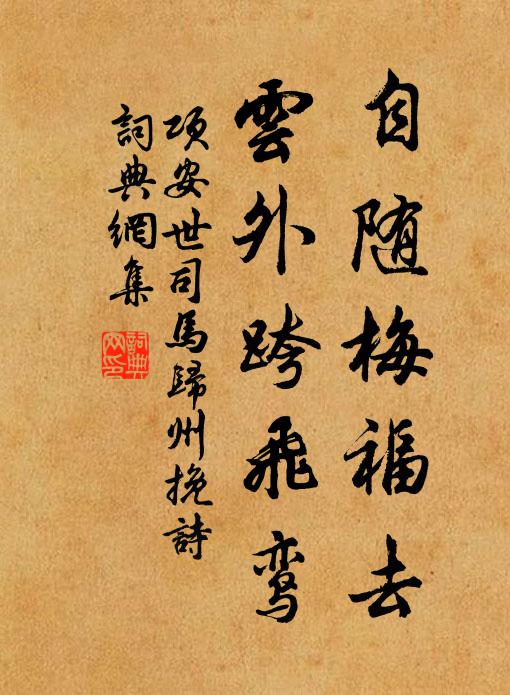 自随梅福去
雲外跨飛鸾
項安世司馬歸州挽詩
詞典網集
詞典
网印